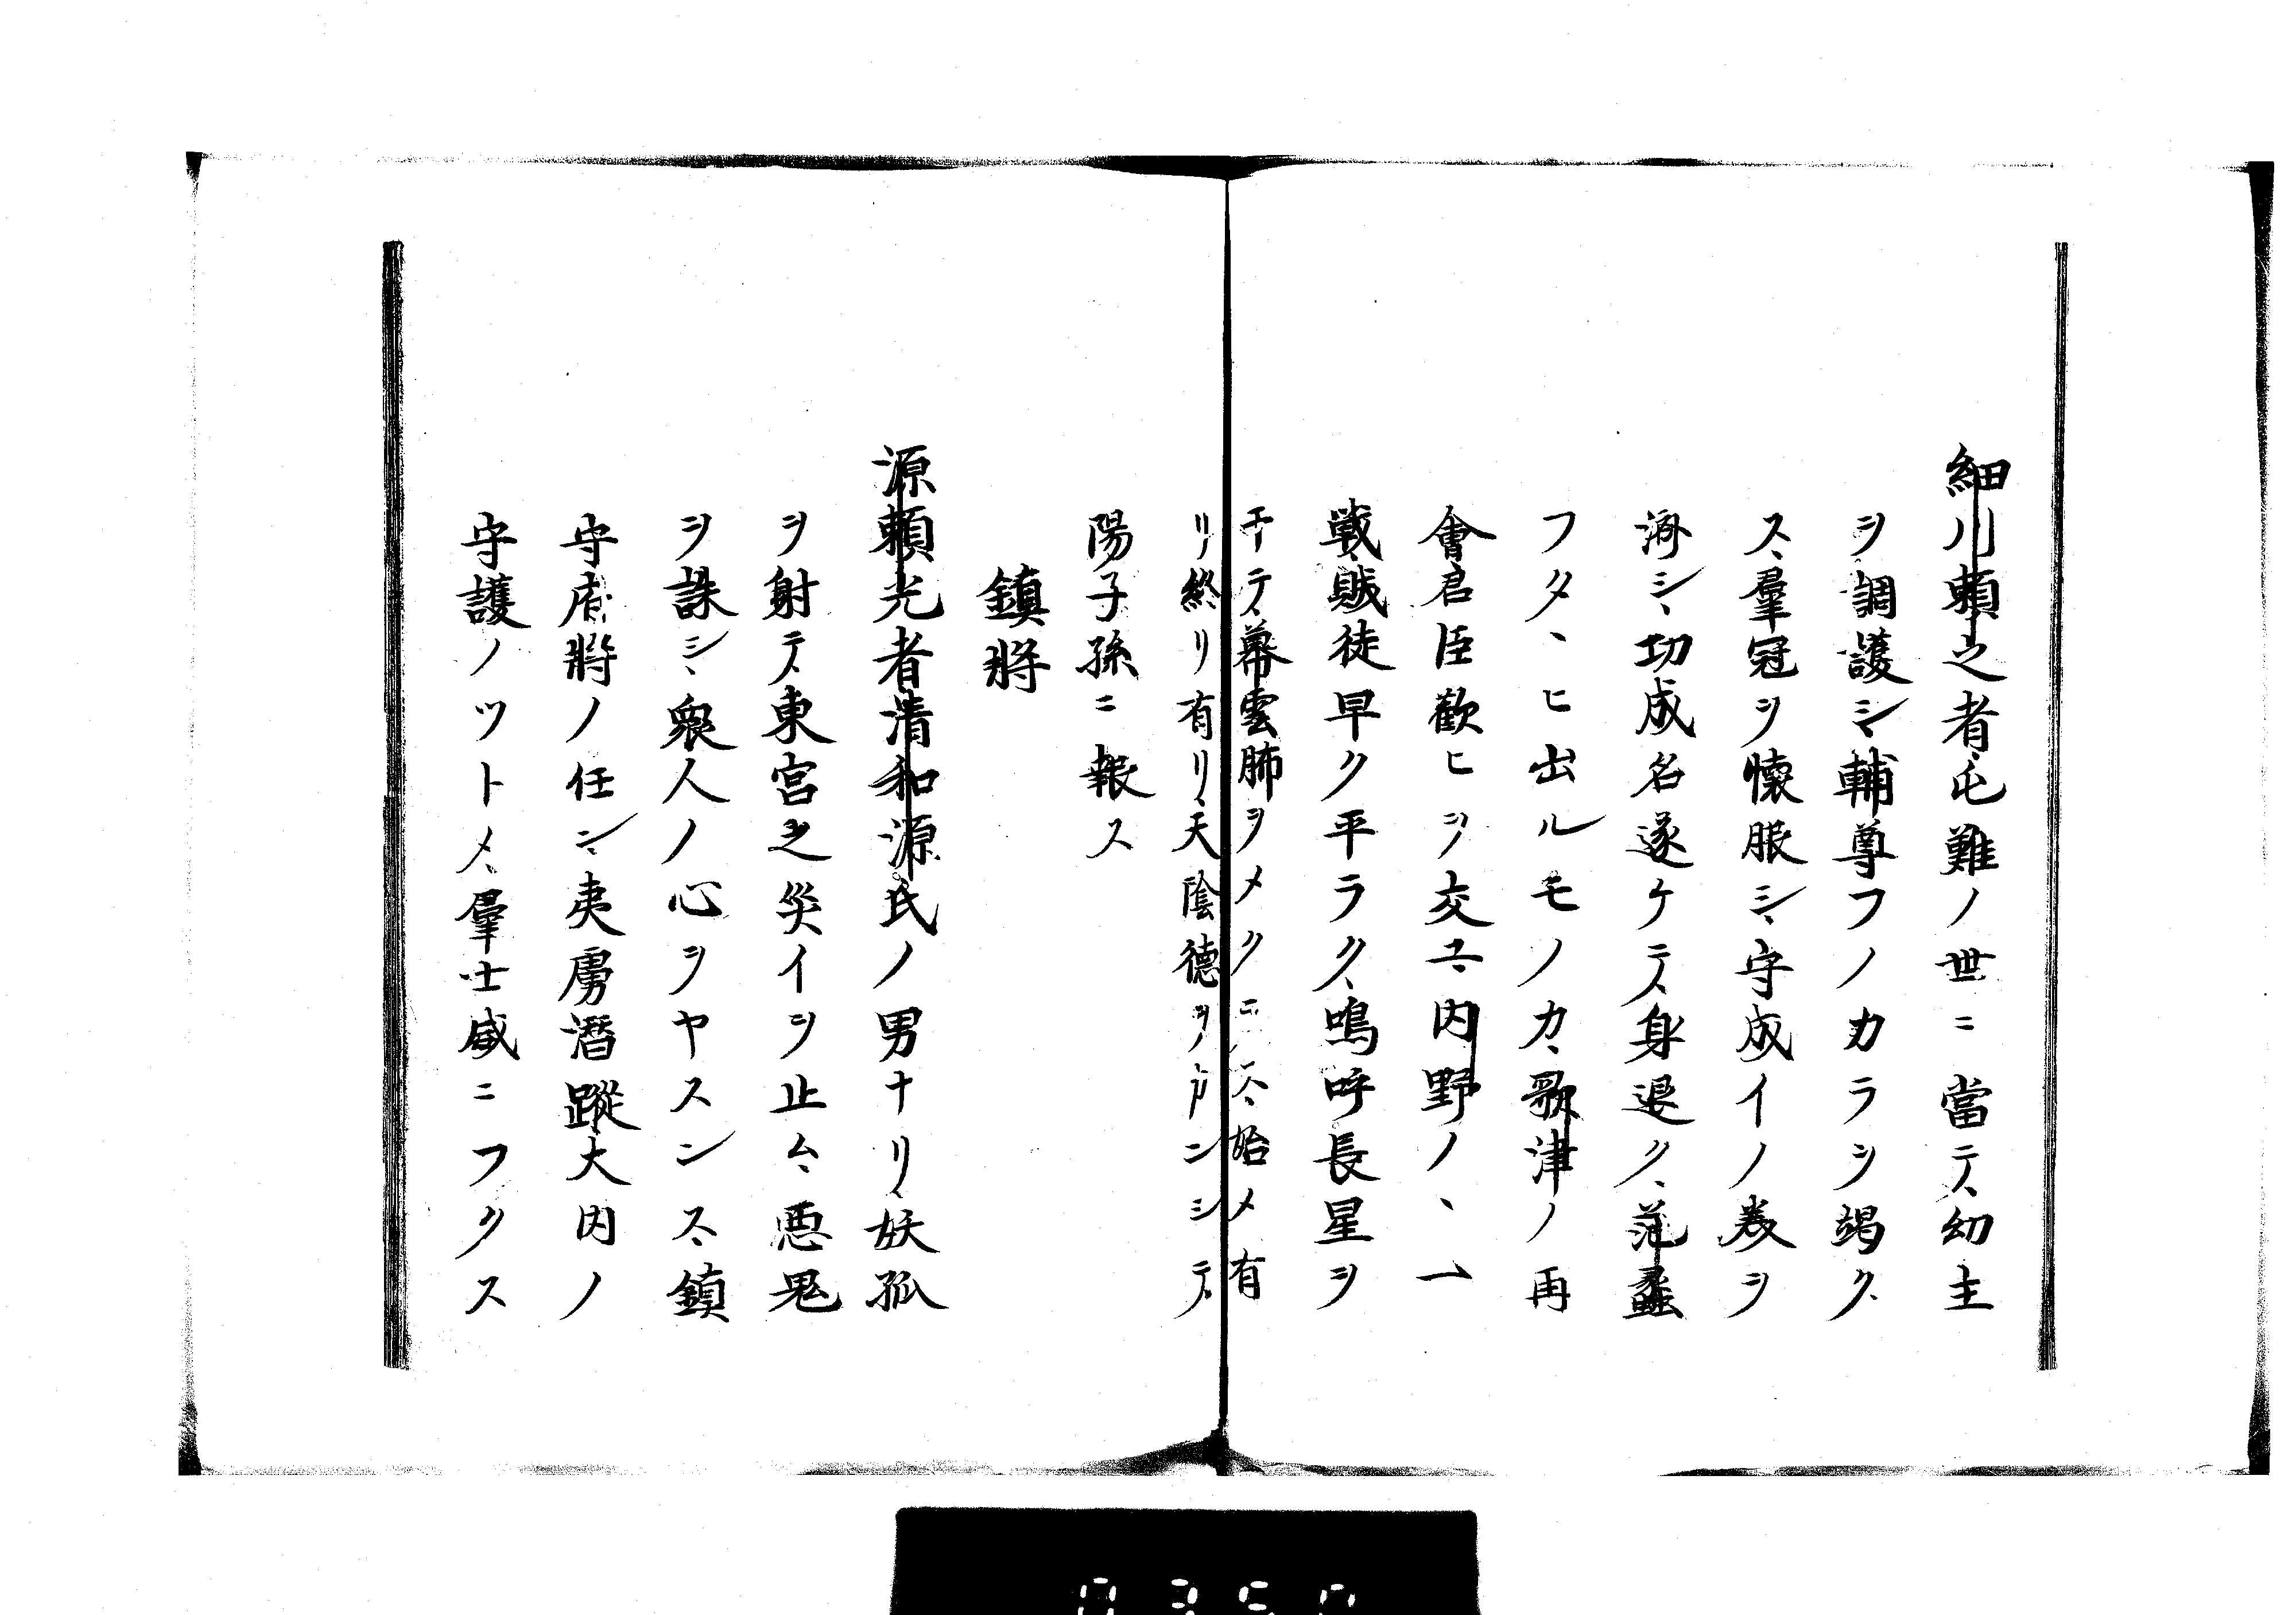 細川頼之者屯難ノ世ニ當テ幼主
ヲ調護シ輔尊フノカラヲ竭ク
ス羣冦ヲ懐服シ守成イノ義ヲ
済シ功成名遂ケテ身退ク范蠡
フタヽヒ出ルモノカ歌津ノ再
會君臣歓ヒヲ交ユ内野ノヽ一
戦賊徒早ク平ラク嗚呼長星ヲ
テ幕雲肺ヲメクニス始メ有
リ終リ有リ天陰徳ヲ ンシテ
陽子孫ニ報ス
鎮將
源頼光者清和源氏ノ男ナリ妖孤
ヲ射テ東宮之災イヲ止ム悪鬼
ヲ誅シ衆人ノ心ヲヤスンス鎮
守府將ノ任ン夷虜潛蹤大内ノ
守護ノツトメ羣士威ニフクス
0350